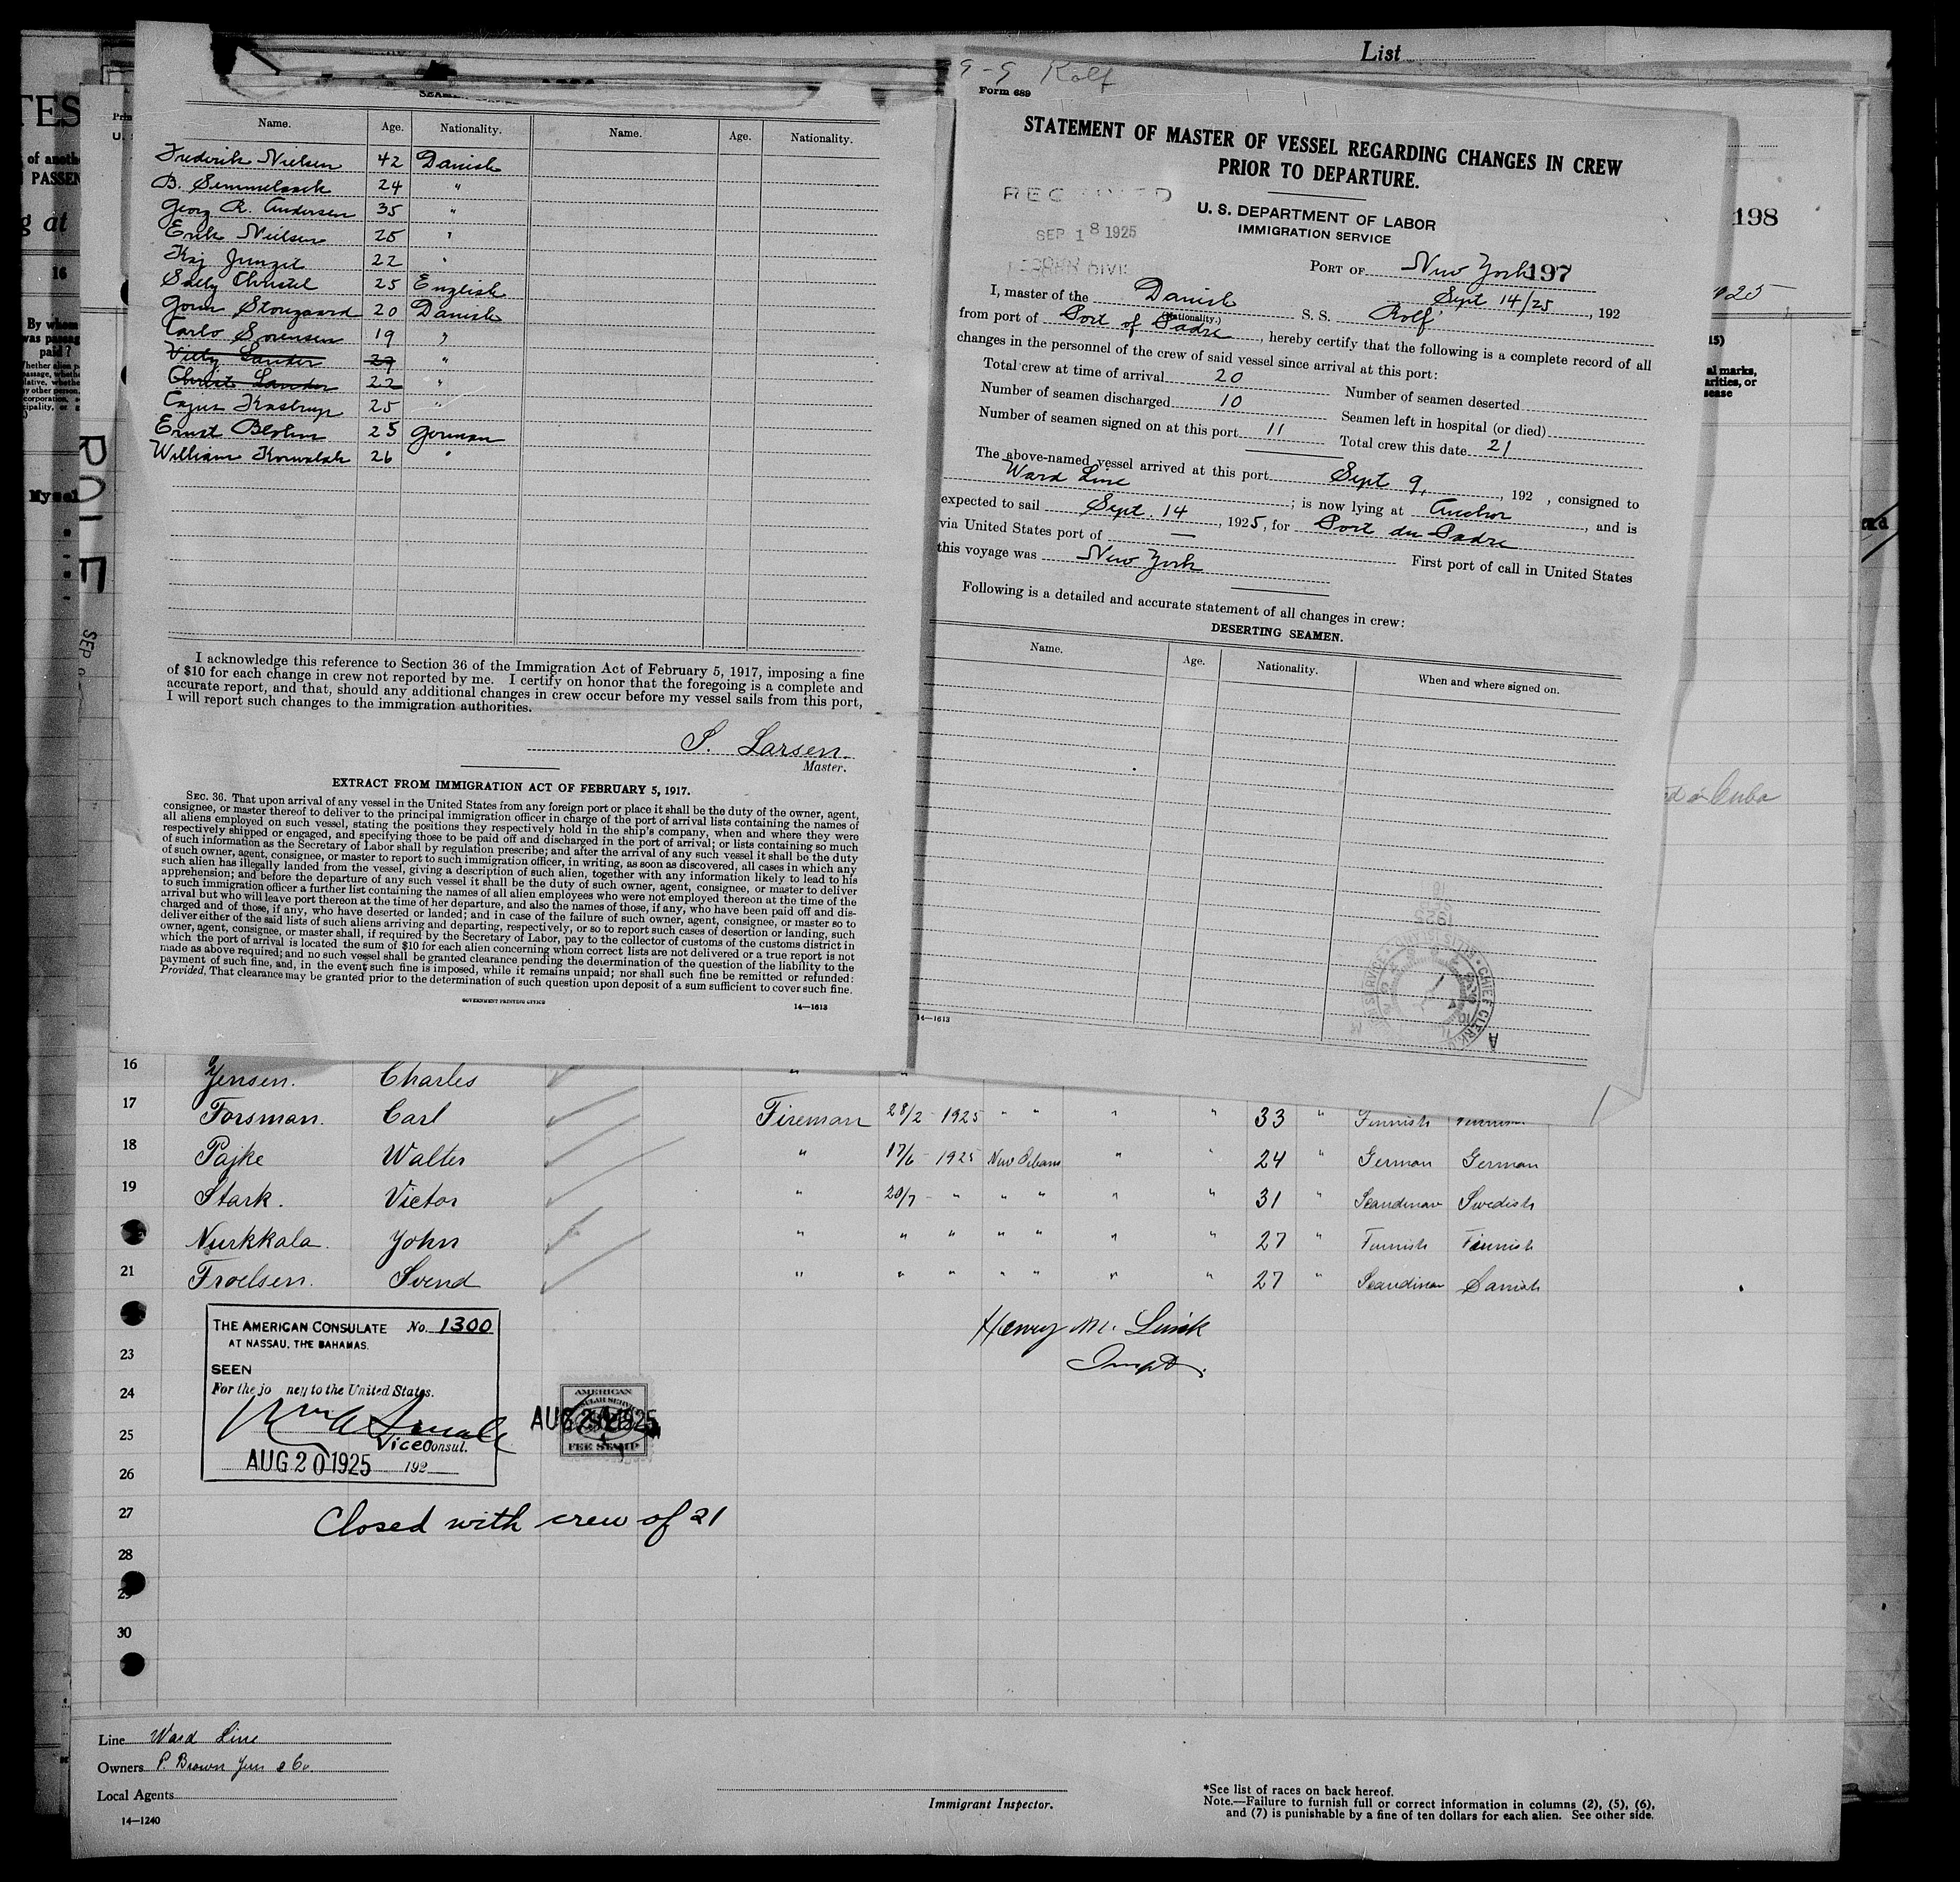 List
TES
of anoth
PASSEN
g at
16
By whom
was passag
paid?
Name. Age. Nationality. Name. Age. Nationality.
Frederik Nielsen 42 Danish
B. Semmelsack 24 "
Georg R. Andersen 35 "
Erik Nielsen 25 "
Kaj 22 "
Sally Christel 25 English
20 Danish
Carlo Sorensen 19 "
Willy Lander 29 "
Christ Lander 22 "
Cajus Kastrup 25 "
Ernst 25 German
William 26 "
I acknowledge this reference to Section 36 of the Immigration Act of February 5, 1917, imposing a fine
of $10 for each change in crew not reported by me. I certify on honor that the foregoing is a complete and
accurate report, and that, should any additional changes in crew occur before my vessel sails from this port,
I will report such changes to the immigration authorities.
S. Larsen.
Master.
EXTRACT FROM IMMIGRATION ACT OF FEBRUARY 5, 1917.
SEC. 36. That upon arrival of any vessel in the United States from any foreign port or place it shall be the duty of the owner, agent,
consignee, or master thereof to deliver to the principal immigration officer in charge of the port of arrival lists containing the names of
all aliens employed on such vessel, stating the positions they respectively hold in the ship's company, when and where they were
respectively shipped or engaged, and specifying those to be paid off and discharged in the port of arrival; or lists containing so much
of such information as the Secretary of Labor shall by regulation prescribe; and after the arrival of any such vessel it shall be the duty
of such owner, agent, consignee, or master to report to such immigration officer, in writing, as soon as discovered, all cases in which any
such alien has illegally landed from the vessel, giving a description of such alien, together with any information likely to lead to his
apprehension; and before the departure of any such vessel it shall be the duty of such owner, agent, consignee, or master to deliver
to such immigration officer a further list containing the names of all alien employees who were not employed thereon at the time of the
arrival but who will leave port thereon at the time of her departure, and also the names of those, if any, who have been paid off and dis-
charged and of those, if any, who have deserted or landed; and in case of the failure of such owner, agent, consignee, or master so to
deliver either of the said lists of such aliens arriving and departing, respectively, or so to report such cases of desertion or landing, such
owner, agent, consignee, or master shall, if required by the Secretary of Labor, pay to the collector of customs of the customs district in
which the port of arrival is located the sum of $10 for each alien concerning whom correct lists are not delivered or a true report is not
made as above required; and no such vessel shall be granted clearance pending the determination of the question of the liability to the
payment of such fine, and, in the event such fine is imposed, while it remains unpaid; nor shall such fine be remitted or refunded:
Provided, That clearance may be granted prior to the determination of such question upon deposit of a sum sufficient to cover such fine.
GOVERNMENT PRINTING OFFICE 14—1613
9-9 Rolf
Form 689
STATEMENT OF MASTER OF VESSEL REGARDING CHANGES IN CREW
PRIOR TO DEPARTURE.
SEP 18 1925
U. S. DEPARTMENT OF LABOR
IMMIGRATION SERVICE
PORT OF New York 197
Sept 14/25, 192
I, master of the Danish S. S. Rolf
(Nationality.)
from port of Port of Padre, hereby certify that the following is a complete record of all
changes in the personnel of the crew of said vessel since arrival at this port:
Total crew at time of arrival 20
Number of seamen discharged 10 Number of seamen deserted
Number of seamen signed on at this port 11 Seamen left in hospital (or died)
Total crew this date 21
The above-named vessel arrived at this port Sept 9, 192 , consigned to
Ward Line ; is now lying at Anchor, and is
expected to sail Sept. 14, 1925, for Port du Padre
via United States port of — First port of call in United States
this voyage was New York
Following is a detailed and accurate statement of all changes in crew:
DESERTING SEAMEN.
Name. Age. Nationality. When and where signed on.
14—1613
198
1925
Cuba
16 Jensen. Charles "
17 Forsman. Carl Fireman 28/2 1925 " " " " 33 " Finnish Finnish
18 Pajke Walter " 17/6 - 1925 New Orleans " " 24 " German German
19 Stark. Victor " 20/7 - " " " " " 31 " Scandinav Swedish
Nurkkala. John " " " " " " " 27 " Finnish Finnish
21 Froelsen. Svend " " " " " " " 27 " Scandinav Danish
THE AMERICAN CONSULATE No. 1300
AT NASSAU, THE BAHAMAS.
SEEN
For the jo ney to the United States.
Vice Consul.
AUG 20 1925 192
AMERICAN
FEE STAMP
Henry M.
Inspt.
23
24
25
26
27
Closed with crew of 21
28
29
30
Line Ward Line
Owners P. Brown Jun & Co.
Local Agents
14—1240
Immigrant Inspector.
*See list of races on back hereof.
Note.—Failure to furnish full or correct information in columns (2), (5), (6),
and (7) is punishable by a fine of ten dollars for each alien. See other side.